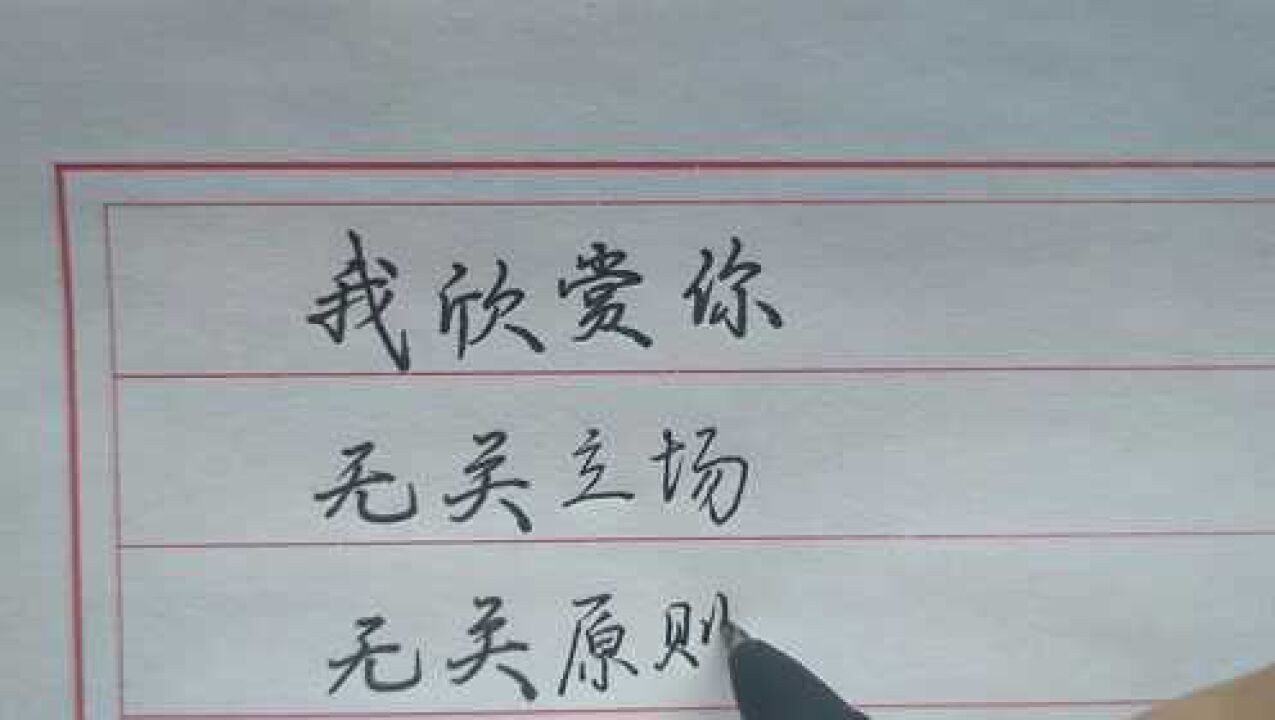 我欣赏你
无关立场
无关原则